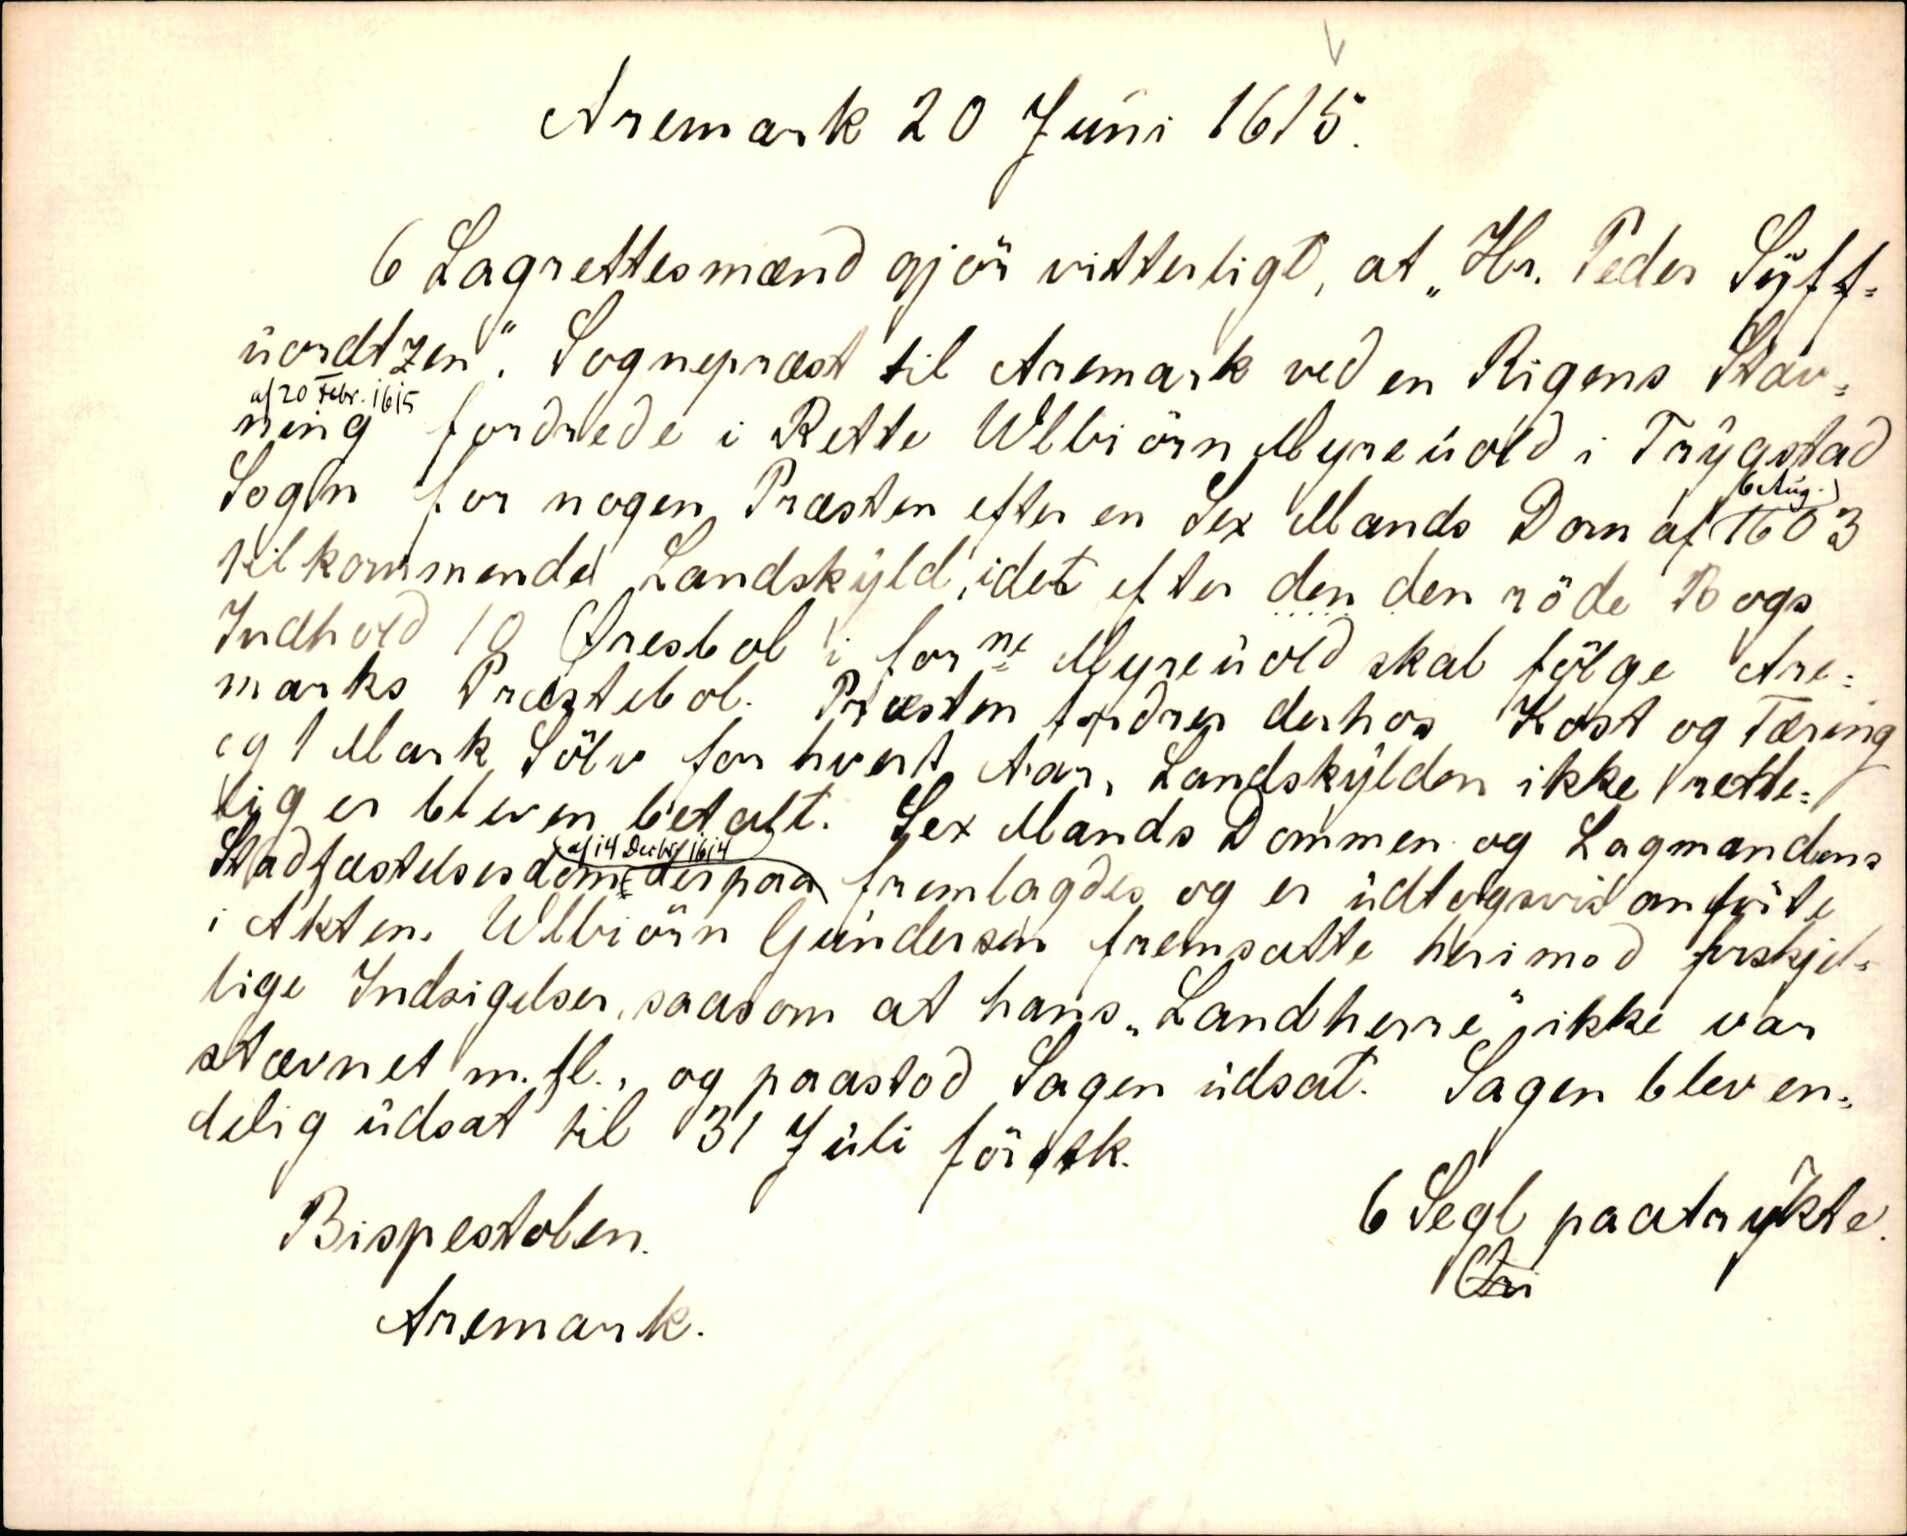 Aremark 20 Juni 1615.
6 Lagrettesmænd gjör vitterligt, at „Hr. Peder Syff-
uordtzen“. Sognepræst til Aremark ved en Rigens Stæv-
af 20 Febr. 1615
ning fordrede i Rette Ulbiörn Myreuold i Trygstad
6 Aug.
Sogn for nogen Præsten efter en Sex Mands Dom af 1603
tilkommende Landskyld, idet efter den den röde Bogs
Indhold 10 Øresbol i forne Myreuold skal fölge Are-
marks Præstebol. Præsten fordrer derhos Kost og Tæring
og 1 Mark Sölv for hvert Aar, Landskylden ikke rette-
lig er bleven betalt. Sex Mands Dommen og Lagmandens
af 14 Decbr 1614
Stadfæstelsesdom derpaa fremlagdes og er udtogsvis anförte
i Akten. Ulbiörn Gundersen fremsatte herimod forskjel-
lige Indsigelser, saasom at hans „Landherre“ ikke var
stævnet m. fl., og paastod Sagen udsat. Sagen blev en-
delig udsat til 31 Juli förstk.
6 Segl paatrykte.
Bispestolen.
Aremark.